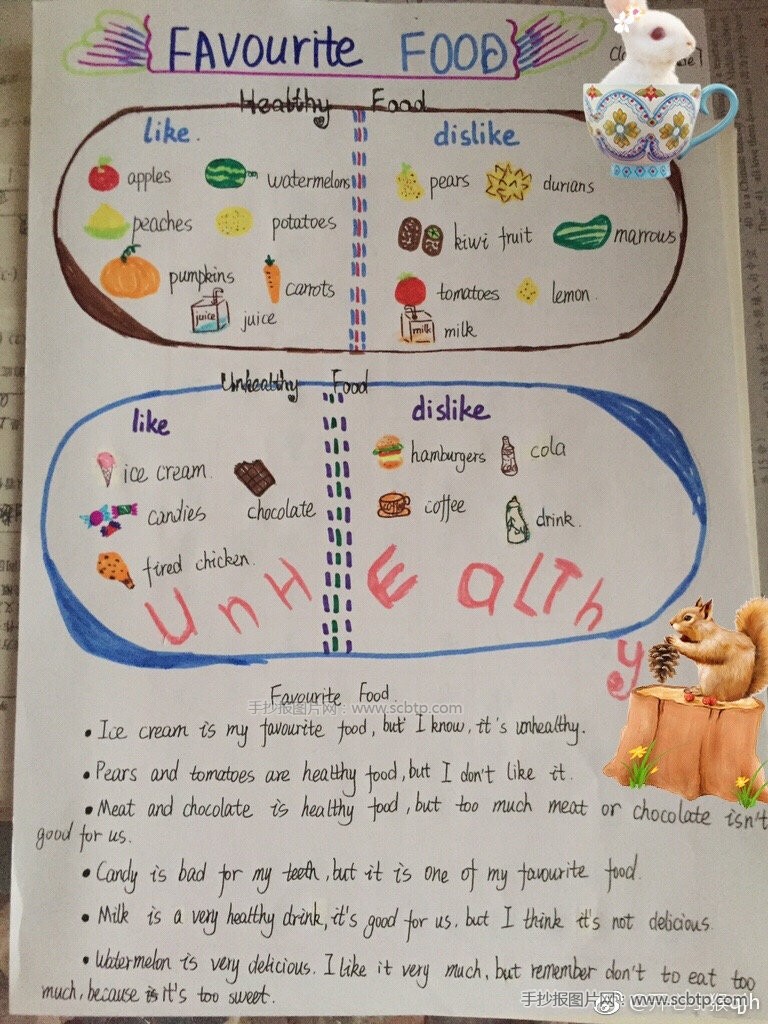 FAVOURITE FOOD
Healthy Food
like.
dislike
apples
watermelons
pears
durians
peaches
potatoes
kiwi fruit
marrows
pumpkins
carrots
tomatoes
lemon.
juice
juice
milk
milk
Unhealthy Food
like
dislike
ice cream.
hamburgers
cola
candies
chocolate
coffee
drink.
fired chicken.
UnHEaLThy
Favourite Food.
手抄报图片网：www.scbtp.com
• Ice cream is my favourite food, but I know, it's unhealthy.
• Pears and tomatoes are healthy food, but I don't like it.
• Meat and chocolate is healthy food, but too much meat or chocolate isn't
good for us.
• Candy is bad for my teeth, but it is one of my favourite food.
• Milk is a very healthy drink, it's good for us. but I think it's not delicious.
• Watermelon is very delicious. I like it very much, but remember don't to eat too
much, because it's too sweet.
手抄报图片网：www.scbtp.com